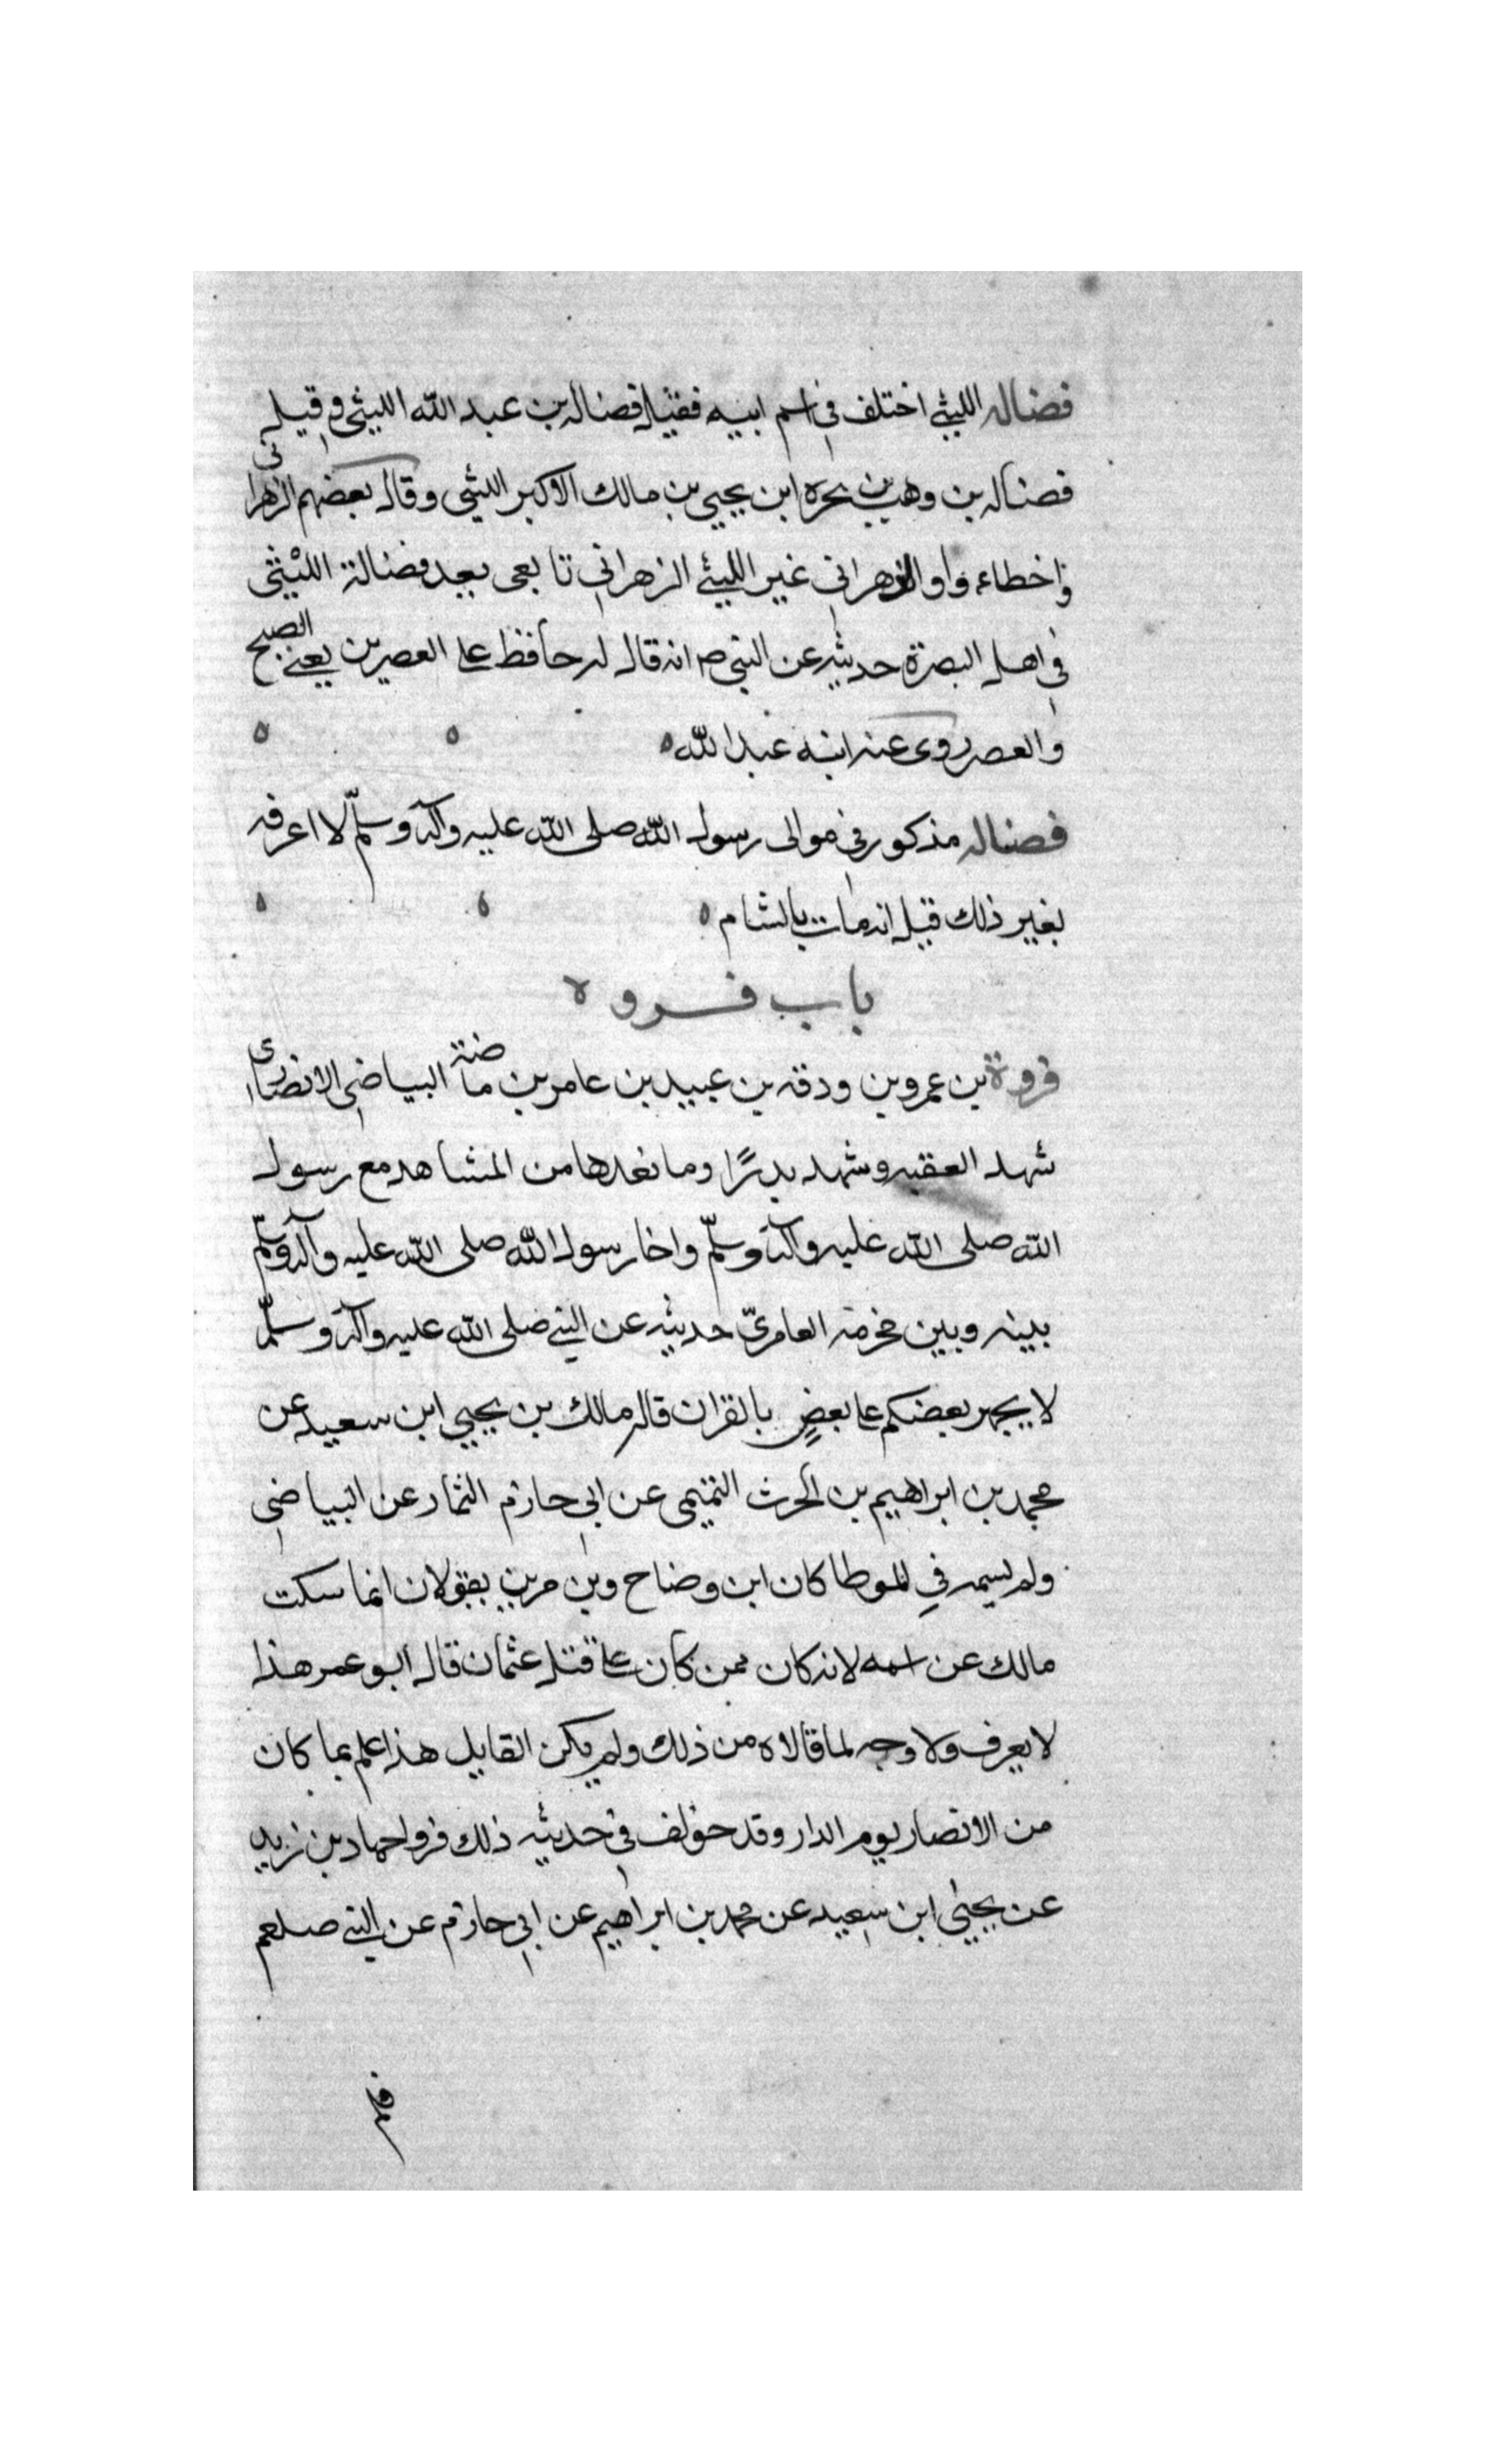 فضاله الليثي اختلف في اسم ابيه فقيل فضاله بن عبد الله الليثي وقيل
فضاله بن وهب بن بحره ابن يحيي بن مالك الاكبر الليثي وقال بعضهم الزهراني
واخطاء الزهراني غير الليثي الزهراني تابعى يعد فضالة الليثي
في اهل البصرة حديثه عن النبي ص انه قال له حافظ على العصرين يعني الصبح
والعصر روى عنه ابنه عبد الله ه
فضاله مذكور في موالى رسول الله صلى الله عليه وآله وسلّم لا اعرفه
بغير ذلك قيل انه مات بالشام ه
باب فروه
فروة بن عمرو بن ودقه بن عبيد بن عامر بن بياضة البياضى الانصارى
شهد العقبه وشهد بدرًا وما بعدها من المشاهد مع رسول
الله صلى الله عليه وآله وسلّم واخا رسول الله صلى الله عليه وآله وسلّم
بينه وبين مخرمة العامريّ حديثه عن النبي صلى الله عليه وآله وسلّم
لا يجهر بعضكم على بعضٍ بالقران قاله مالك بن يحيي ابن سعيد عن
محمد بن ابراهيم بن الحرث التيمى عن ابي حازم التمار عن البياضى
ولم يسمه في الموطا كان ابن وضاح وبن مزين يقولان انما سكت
مالك عن اسمه لانه كان ممن كان على قتل عثمان قال ابو عمر هذا
لا يعرف ولا وجه لما قالاه من ذلك ولم يكن القايل هذا علم بما كان
من الانصار يوم الدار وقد خولف في حديثه ذلك فروا حماد بن زيد
عن يحيي ابن سعيد عن محمد بن ابراهيم عن ابي حازم عن النبي صلعم